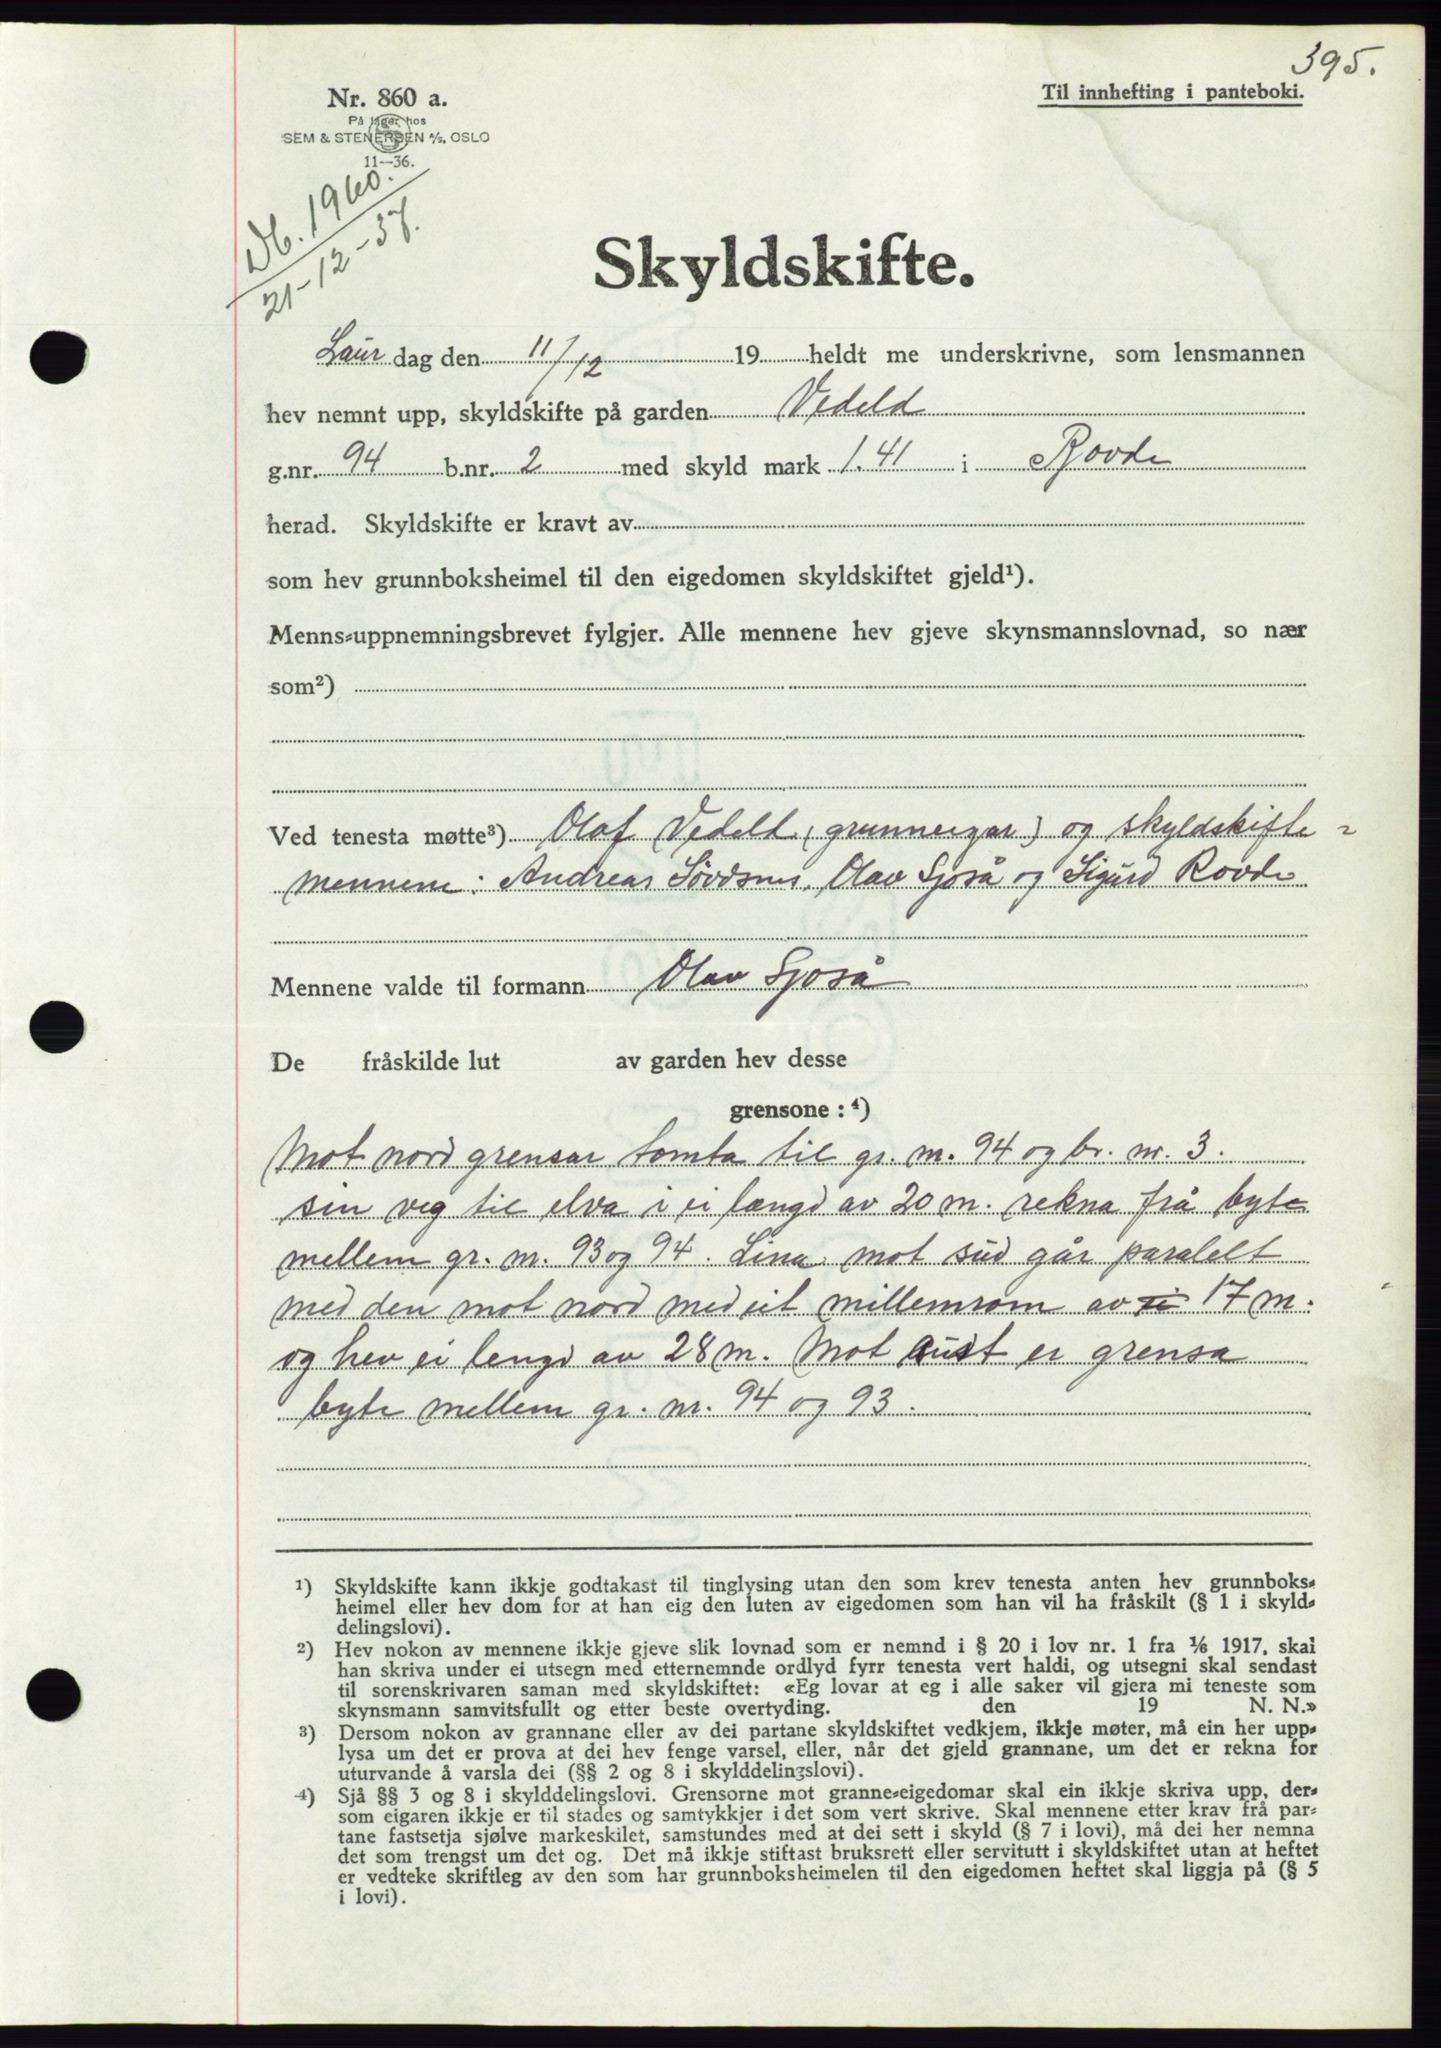 395.
Nr. 860 a.
På lager hos
SEM & STENERSEN A/S, OSLO
11—36.
Til innhefting i panteboki.
Db. 1960.
21-12-37.
Skyldskifte.
Laur dag den 11/12 19 heldt me underskrivne, som lensmannen
hev nemnt upp, skyldskifte på garden Vedeld
g.nr. 94 b.nr. 2 med skyld mark 1.41 i Rovde
herad. Skyldskifte er kravt av
som hev grunnboksheimel til den eigedomen skyldskiftet gjeld¹).
Menns-uppnemningsbrevet fylgjer. Alle mennene hev gjeve skynsmannslovnad, so nær
som²)
Ved tenesta møtte³) Olaf Vedeld (grunneigar) og skyldskifte-
mennene: Andreas Søvdsnes, Olav Sjoså og Sigurd Rovde
Mennene valde til formann Olav Sjoså
De fråskilde lut av garden hev desse
grensone: ⁴)
Mot nord grensar tomta til gr. nr. 94 og br. nr. 3.
sin veg til elva i ei længd av 20 m. rekna frå byte
mellem gr. nr. 93 og 94. Lina mot sud går paralelt
med den mot nord med eit millemrom av 17 m.
og hev ei lengd av 28 m. Mot aust er grensa
byte mellem gr. nr. 94 og 93.
1) Skyldskifte kann ikkje godtakast til tinglysing utan den som krev tenesta anten hev grunnboks-
heimel eller hev dom for at han eig den luten av eigedomen som han vil ha fråskilt (§ 1 i skyld-
delingslovi).
2) Hev nokon av mennene ikkje gjeve slik lovnad som er nemnd i § 20 i lov nr. 1 fra 1/6 1917, skal
han skriva under ei utsegn med etternemnde ordlyd fyrr tenesta vert haldi, og utsegni skal sendast
til sorenskrivaren saman med skyldskiftet: «Eg lovar at eg i alle saker vil gjera mi teneste som
skynsmann samvitsfullt og etter beste overtyding. den 19 N. N.»
3) Dersom nokon av grannane eller av dei partane skyldskiftet vedkjem, ikkje møter, må ein her upp-
lysa um det er prova at dei hev fenge varsel, eller, når det gjeld grannane, um det er rekna for
uturvande å varsla dei (§§ 2 og 8 i skylddelingslovi).
4) Sjå §§ 3 og 8 i skylddelingslovi. Grensorne mot granne-eigedomar skal ein ikkje skriva upp, der-
som eigaren ikkje er til stades og samtykkjer i det som vert skrive. Skal mennene etter krav frå par-
tane fastsetja sjølve markeskilet, samstundes med at dei sett i skyld (§ 7 i lovi), må dei her nemna
det som trengst um det og. Det må ikkje stiftast bruksrett eller servitutt i skyldskiftet utan at heftet
er vedteke skriftleg av den som har grunnboksheimelen til den eigedomen heftet skal liggja på (§ 5
i lovi).